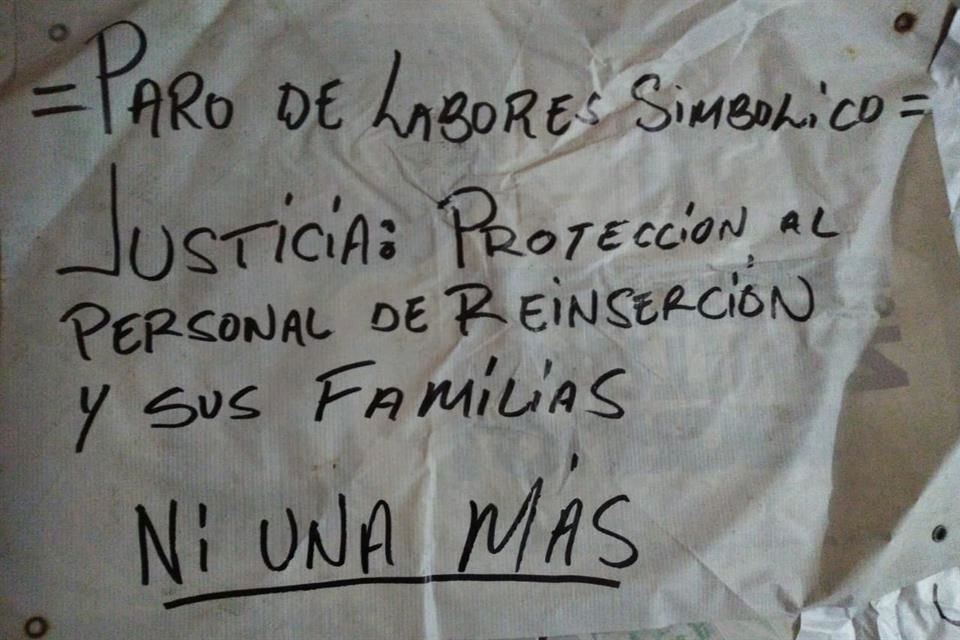 =PARO DE LABORES SIMBOLICO=
JUSTICIA: PROTECCION AL
PERSONAL DE REINSERCIÓN
Y SUS FAMILIAS
NI UNA MÁS